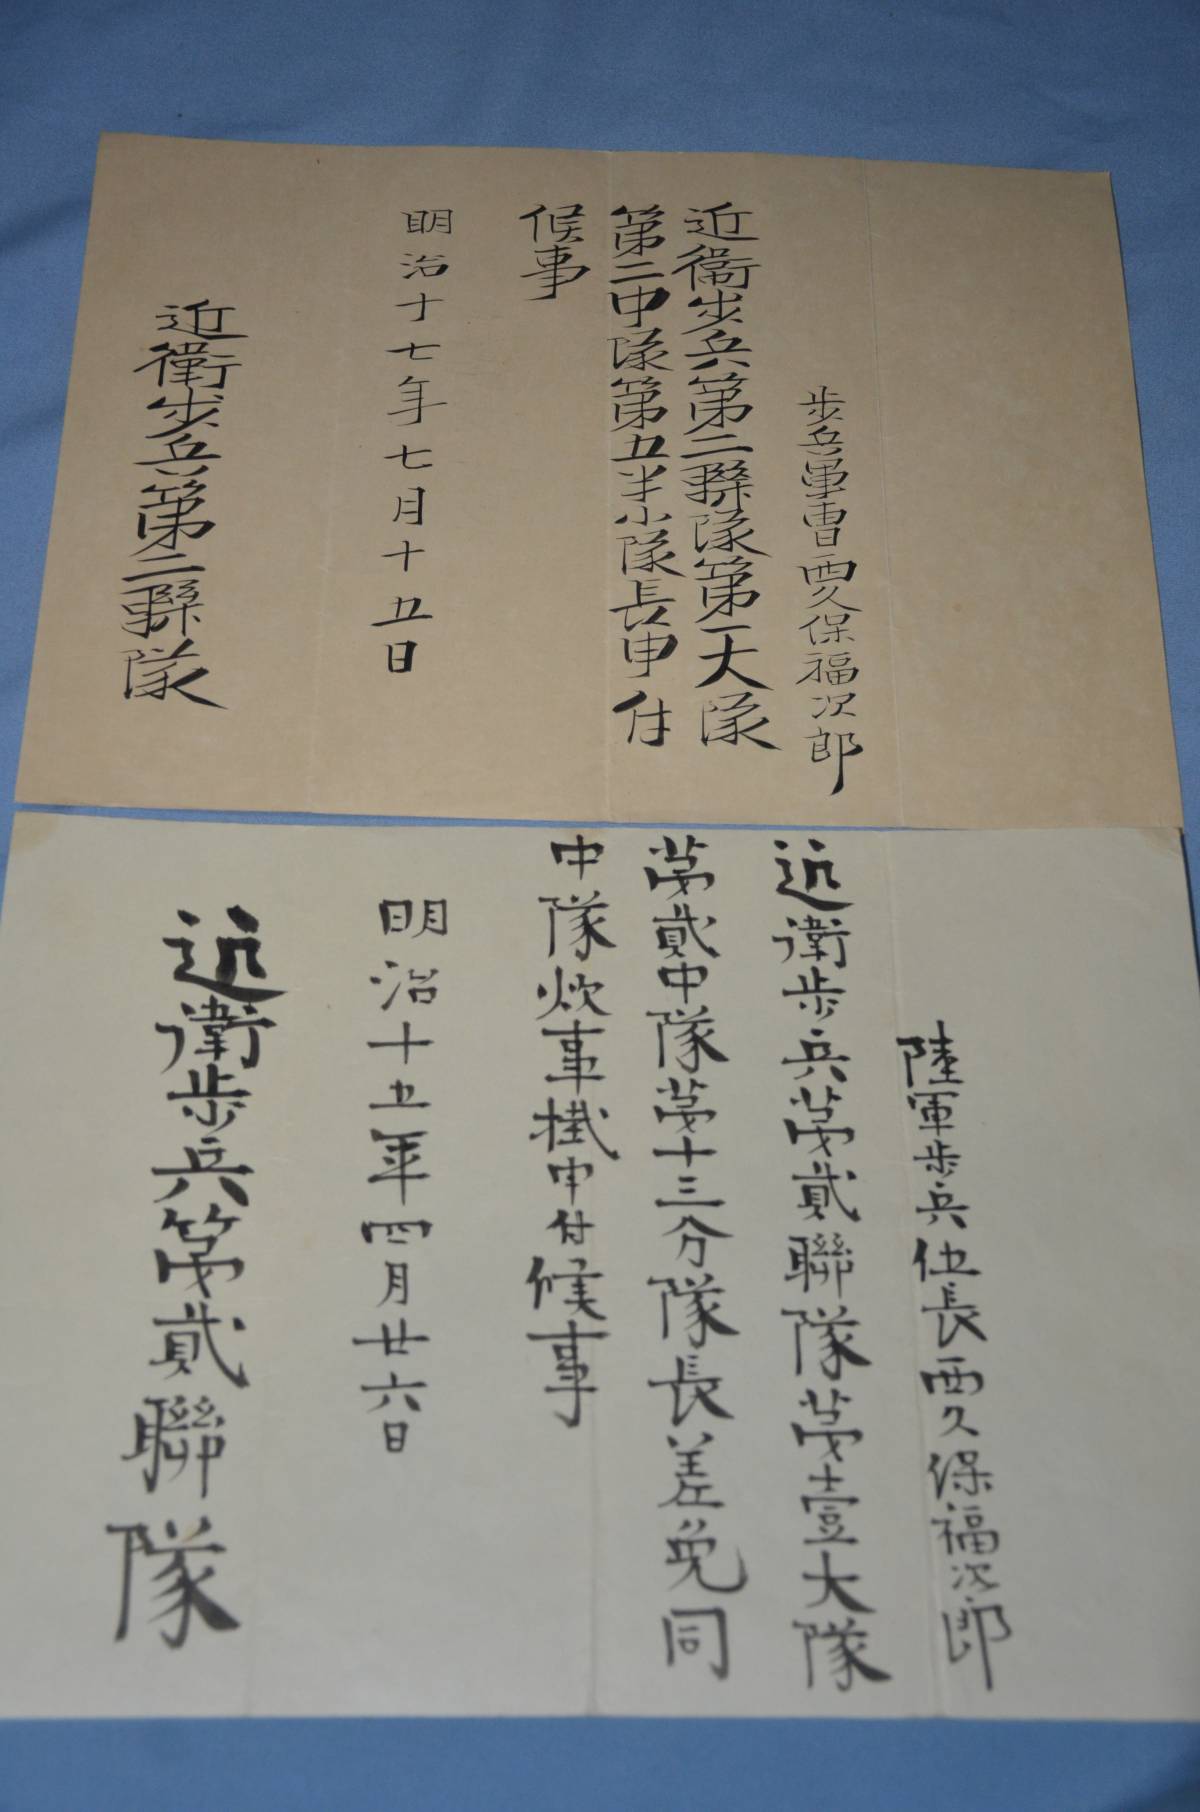 歩兵軍曹西久保福次郎
近衞歩兵第二聯隊第一大隊
第二中隊第五半小隊長申付
候事
明治十七年七月十五日
近衞歩兵第二聯隊
陸軍歩兵伍長西久保福次郎
近衛歩兵第貳聯隊第壹大隊
第貳中隊第十三分隊長差免同
中隊炊事掛申付候事
明治十五年四月廿六日
近衛歩兵第貳聯隊